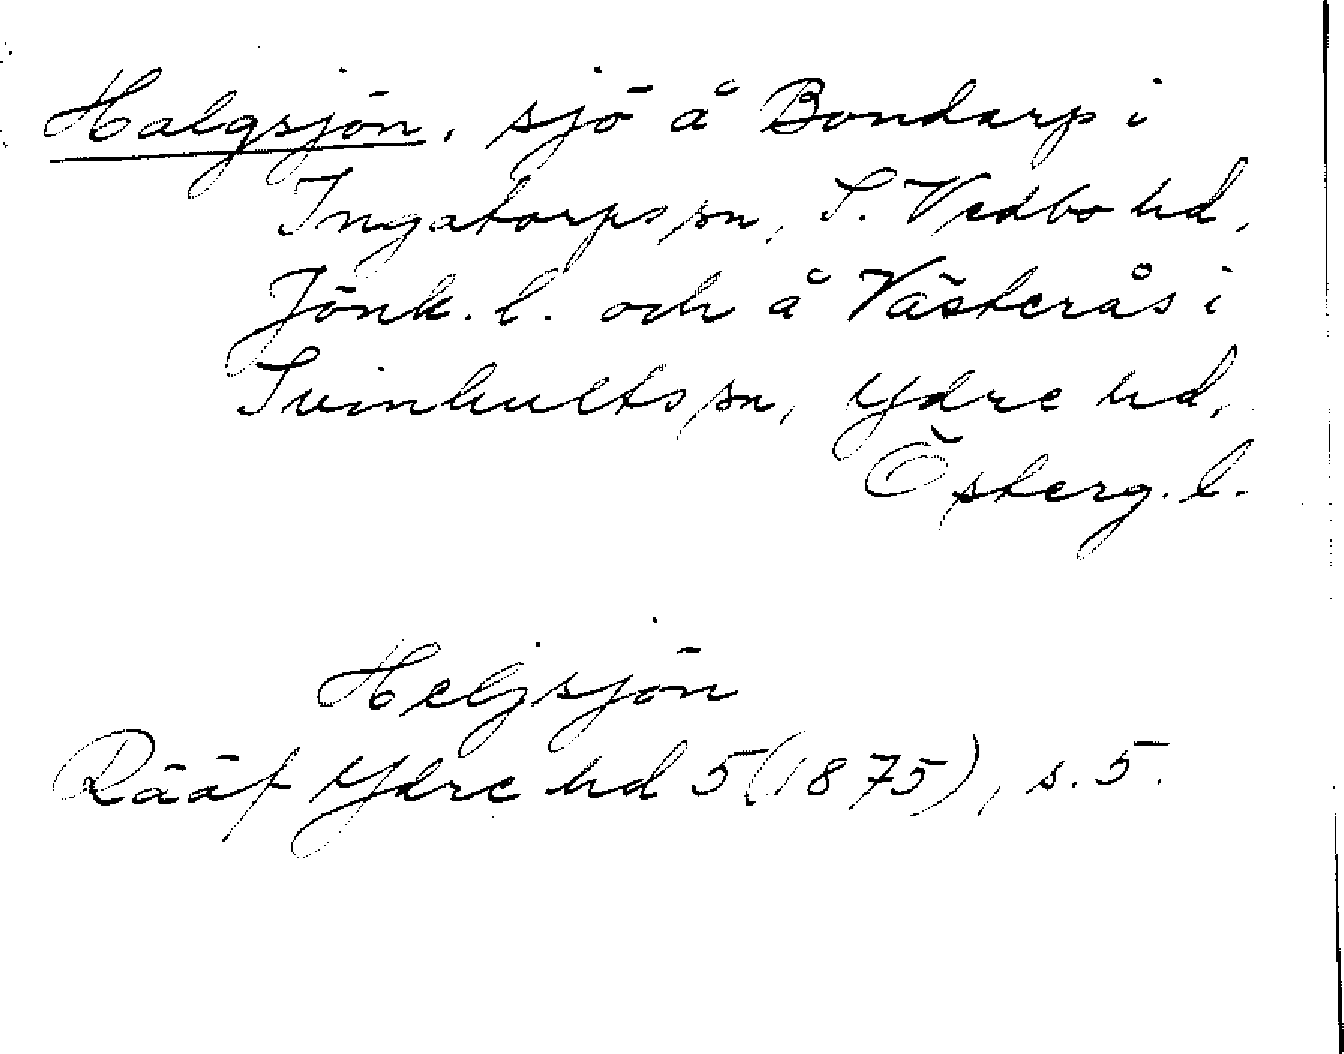 Halgsjön, sjö å Bondarp i
Ingatorps sn, S. Vedbo hd,
Jönk. l. och å Västerås i
Svinhults sn, Ydre hd,
Österg. l.
Heljsjön
Rääf Ydre hd 5 (1875), s. 5.